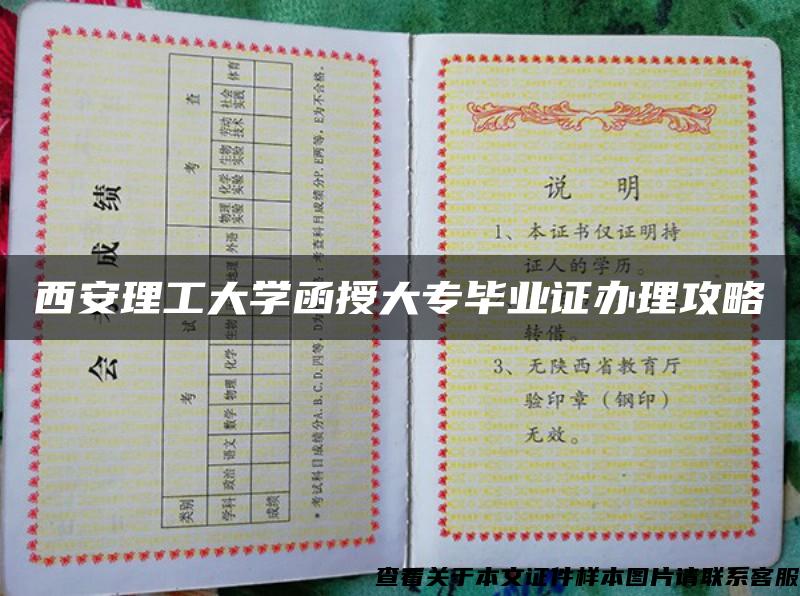 会考成绩
类别 考试 考查
学科 政治 语文 数学 物理 化学 生物 地理 外语 物理实验 化学实验 生物实验 劳动技术 社会实践 体育
成绩
*考试科目成绩分A.B.C.D.四等,D为 考查科目成绩分P.E两等,E为不合格。
说 明
1、本证书仅证明持
证人的学历。
西安理工大学函授大专毕业证办理攻略
转借。
3、无陕西省教育厅
验印章(钢印)
无效。
查看关于本文证件样本图片请联系客服